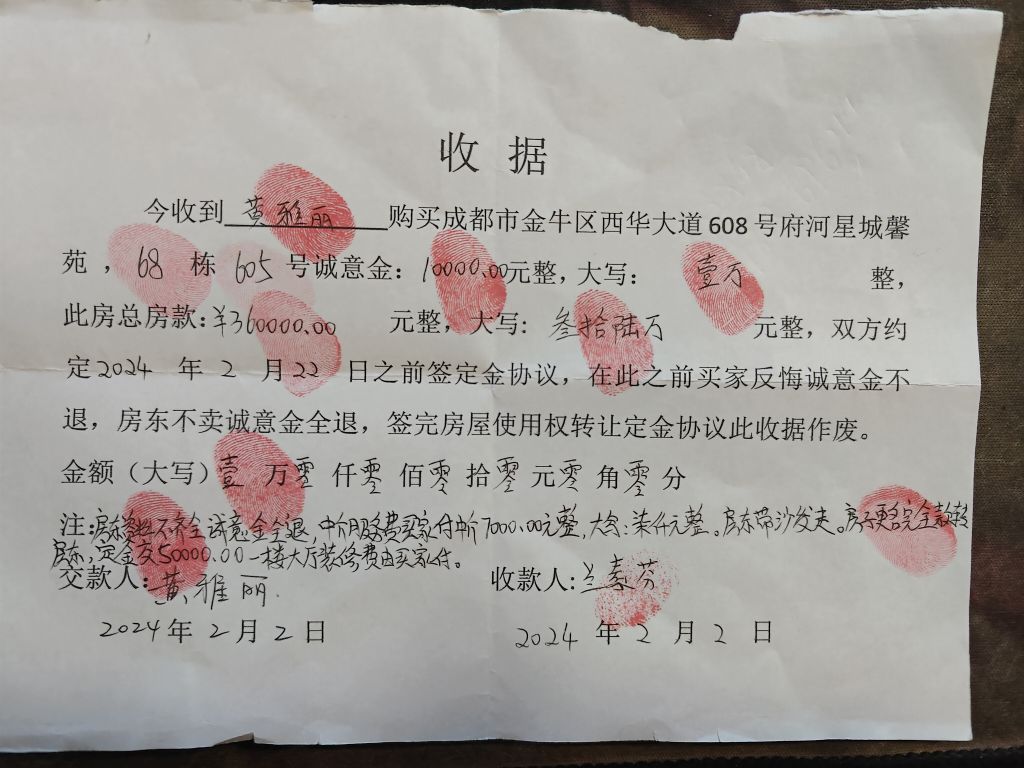 收据
今收到 黄雅丽 购买成都市金牛区西华大道 608 号府河星城馨
苑，68 栋 605 号诚意金：10000.00元整，大写：壹万 整，
此房总房款：¥360000.00 元整，大写：叁拾陆万 元整，双方约
定2024 年 2 月 22 日之前签定金协议，在此之前买家反悔诚意金不
退，房东不卖诚意金全退，签完房屋使用权转让定金协议此收据作废。
金额（大写）壹 万 零 仟 零 佰 零 拾 零 元 零 角 零 分
注：房东资料不齐全诚意金全退，中介服务费买家付中介7000.00元整，大写：柒仟元整。房东带沙发走。房子更名完全款转
房东，定金交50000.00一楼大厅装修费由买家付。
交款人：黄雅丽. 收款人：兰素芬
2024 年 2 月 2 日 2024 年 2 月 2 日